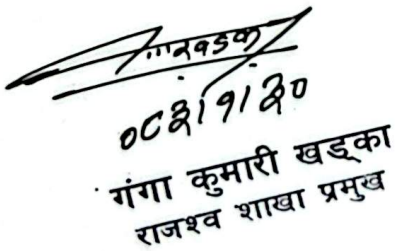 ०८२।९।२०
गंगा कुमारी खड्का
राजश्व शाखा प्रमुख